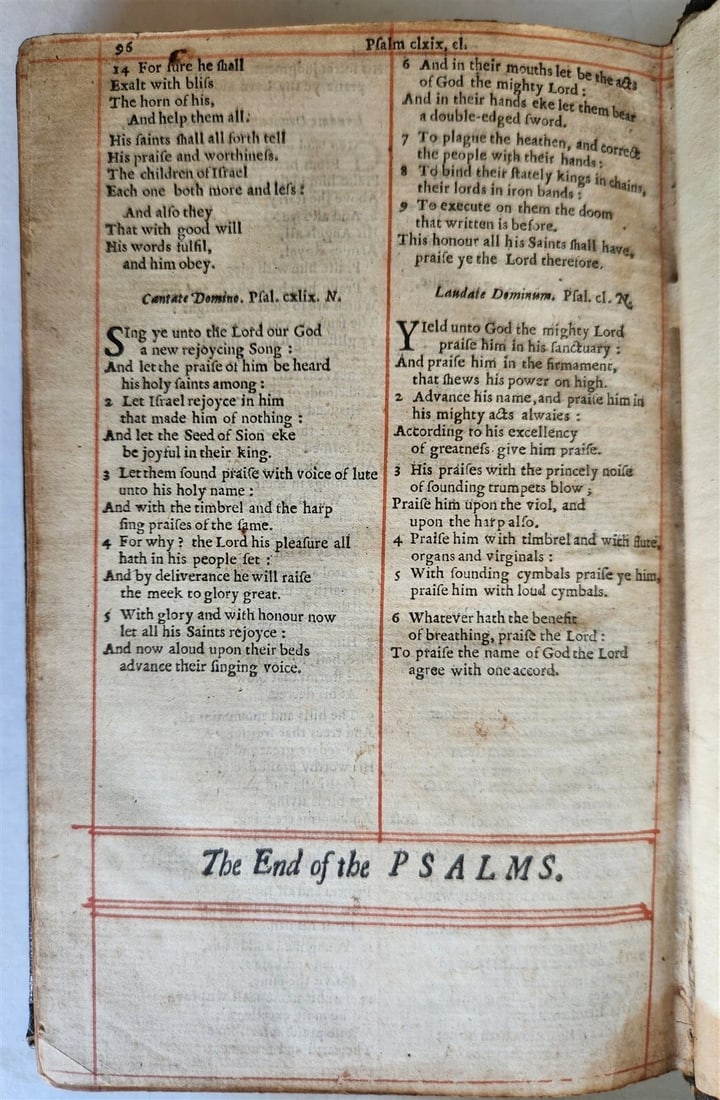 96
Pſalm clxix, cl.
14 For ſure he ſhall
Exalt with bliſs
The horn of his,
And help them all.
His ſaints ſhall all forth tell
His praiſe and worthineſs.
The children of Iſrael
Each one both more and leſs :
And alſo they
That with good will
His words fulfil,
and him obey.
Cantate Domino. Pſal. cxlix. N.
SIng ye unto the Lord our God
a new rejoycing Song :
And let the praiſe of him be heard
his holy ſaints among :
2 Let Iſrael rejoyce in him
that made him of nothing :
And let the Seed of Sion eke
be joyful in their king.
3 Let them ſound praiſe with voice of lute
unto his holy name :
And with the timbrel and the harp
ſing praiſes of the ſame.
4 For why ? the Lord his pleaſure all
hath in his people ſet :
And by deliverance he will raiſe
the meek to glory great.
5 With glory and with honour now
let all his Saints rejoyce :
And now aloud upon their beds
advance their ſinging voice.
6 And in their mouths let be the acts
of God the mighty Lord :
And in their hands eke let them bear
a double-edged ſword.
7 To plague the heathen, and correct
the people with their hands :
8 To bind their ſtately kings in chains,
their lords in iron bands :
9 To execute on them the doom
that written is before.
This honour all his Saints ſhall have,
praiſe ye the Lord therefore.
Laudate Dominum. Pſal. cl. N.
YIeld unto God the mighty Lord
praiſe him in his ſanctuary :
And praiſe him in the firmament,
that ſhews his power on high.
2 Advance his name, and praiſe him in
his mighty acts alwaies :
According to his excellency
of greatneſs give him praiſe.
3 His praiſes with the princely noiſe
of ſounding trumpets blow ;
Praiſe him upon the viol, and
upon the harp alſo.
4 Praiſe him with timbrel and with flute,
organs and virginals :
5 With ſounding cymbals praiſe ye him,
praiſe him with loud cymbals.
6 Whatever hath the benefit
of breathing, praiſe the Lord :
To praiſe the name of God the Lord
agree with one accord.
The End of the PSALMS.